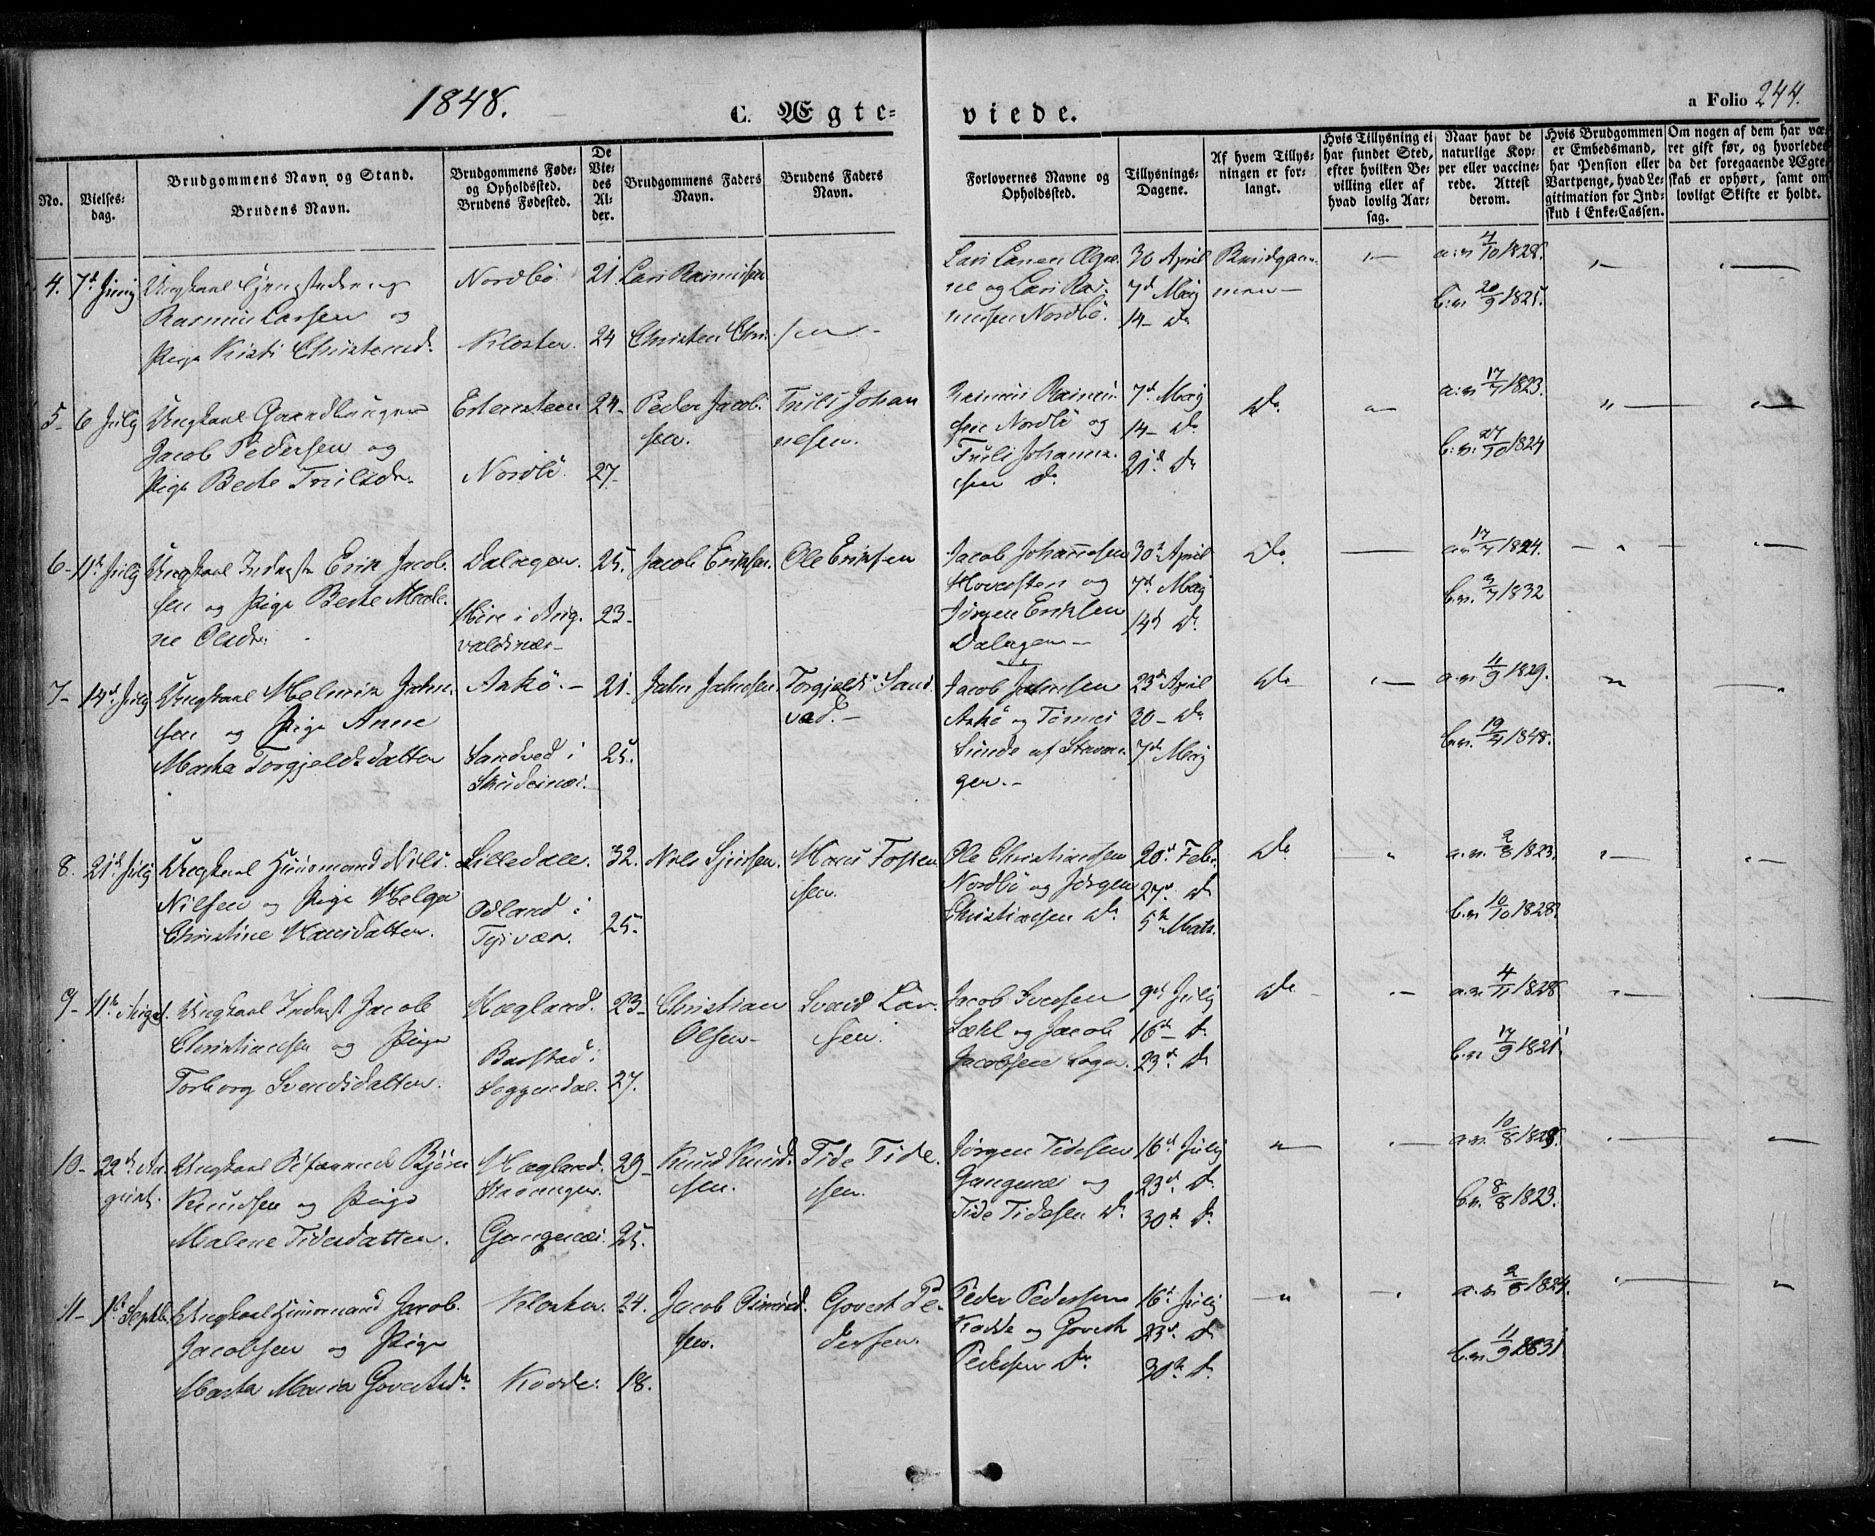 1848.
C. Ægte-
viede.
a Folio 244.
No.
Vielses-
dag.
Brudgommens Navn og Stand.
Brudens Navn.
Brudgommens Føde-
og Opholdssted.
Brudens Fødested.
De
Vie-
des
Al-
der.
Brudgommens Faders
Navn.
Brudens Faders
Navn.
Forlovernes Navne og
Opholdssted.
Tillysnings-
Dagene.
Af hvem Tillys-
ningen er for-
langt.
Hvis Tillysning ei
har fundet Sted,
efter hvilken Be-
villing eller af
hvad lovlig Aar-
sag.
Naar havt de
naturlige Kop-
per eller vaccine-
rede. Attest
derom.
Hvis Brudgommen
er Embedsmand,
har Pension eller
Vartpenge, hvad Le-
gitimation for Ind-
skud i Enke-Cassen.
Om nogen af dem har væ-
ret gift før, og hvorledes
da det foregaaende Ægte-
skab er ophørt, samt om
lovligt Skifte er holdt.
4. 7d Juny Ungkarl
Rasmus Larsen og
Pige Kisti Christensd.
Nordbö 21.
Kloster. 24
Lars Rasmussen
Christen Chri- sen -
Lars Larsen
og Lars Ras-
mussen Nordbö.
30 April
7d Maj
14 - Do
Brudgom-
men -
a.v. 4/10 1828.
b.v. 20/9 1825.
5- 6 July Ungkarl
Jacob Pedersen og
Pige Berte Trulsdr.
24-
Nordbö. 27-
Peder Jacob-
sen.
Truls Johan
nesen.
Rasmus Rasmus-
sen Nordbö og
Truls Johanne-
sen Do
7d Maj
14- Do
21d Do
Do
a.v. 17/7 1823.
b.v. 27/10 1824
6- 11d July Ungkarl Inderst Erik Jacob-
sen og Pige Berte Male-
ne Olsdr.
Dalagen. 25.
i Aug-
valdsnæs- 23-
Jacob Eriksen. Ole Eriksen
Jacob Johannesen
og
Jörgen Eriksen
Dalagen-
30d April
7d Maj
14d Do
Do
a.v. 17/7 1824.
b.v. 3/7 1832
7- 14d July Ungkarl Helmik Jahn-
sen og Pige Anne
Marta Torgjeldsdatter
Askö. - 21.
Sandved i
Skudesnæs. 25.
Jahn Jahnsen. Torgjeld Sand
ved. -
Jacob Jahnsen
Askö og Tönnes
Sunde af Stavan-
ger. -
23d April
30 - Do
7d Maj
Do
a.v. 4/9 1829.
b.v. 19/4 1848.
8. 21d July Ungkarl Huusmand Nils
Nilsen og Pige Helga
Christine Hansdatter.
Lilledale. 32.
Odland i
Tysvær. 25.
Nils Sjursen. Hans Tosten
sen.
Ole Christiansen
Nordbö og Jörgen
Christiansen Do.
20d Feb.
27d. Do
5d Mats.
Do
a.v. 2/8 1823.
b.v. 10/10 1828.
9- 11d August. Ungkarl Inderst Jacob
Christiansen og Pige
Torborg Svendsdatter.
Hægland. 23-
Barstad i
Soggendal. 27.
Christian
Olsen-
Svend Lar-
sen.
Jacob Ivarsen
og Jacob
Jacobsen Sogn.
9d July
16d - Do
23d Do
Do
a.v. 4/11 1828.
b.v. 17/9 1821.
10- 22d Au
gust. Ungkarl Björn
Knudsen og Pige
Malene Tidesdatter.
Hægland. 29-
Stavanger.
Gangenæs. 25.
Knud Knud-
sen.
Tide Tide-
sen.
Jörgen Tidesen
Gangenæs og
Tide Tidesen Do.
16d July
23d. Do
30d. Do.
a.v. 10/8 1828.
b.v. 8/8 1823.
11- 1d Septb. Ungkarl Huusmand Jacob
Jacobsen og Pige
Marta Maria Govertsd.
Kloster 24.
Kodde. 18.
Jacob
sen.
Govert Pe-
dersen.
Peder Pedersen
Kodde og Govert
Pedersen Do.
16d July
23d. Do
30d Do.
a.v. 2/8 1824.
b.v. 11/9 1831